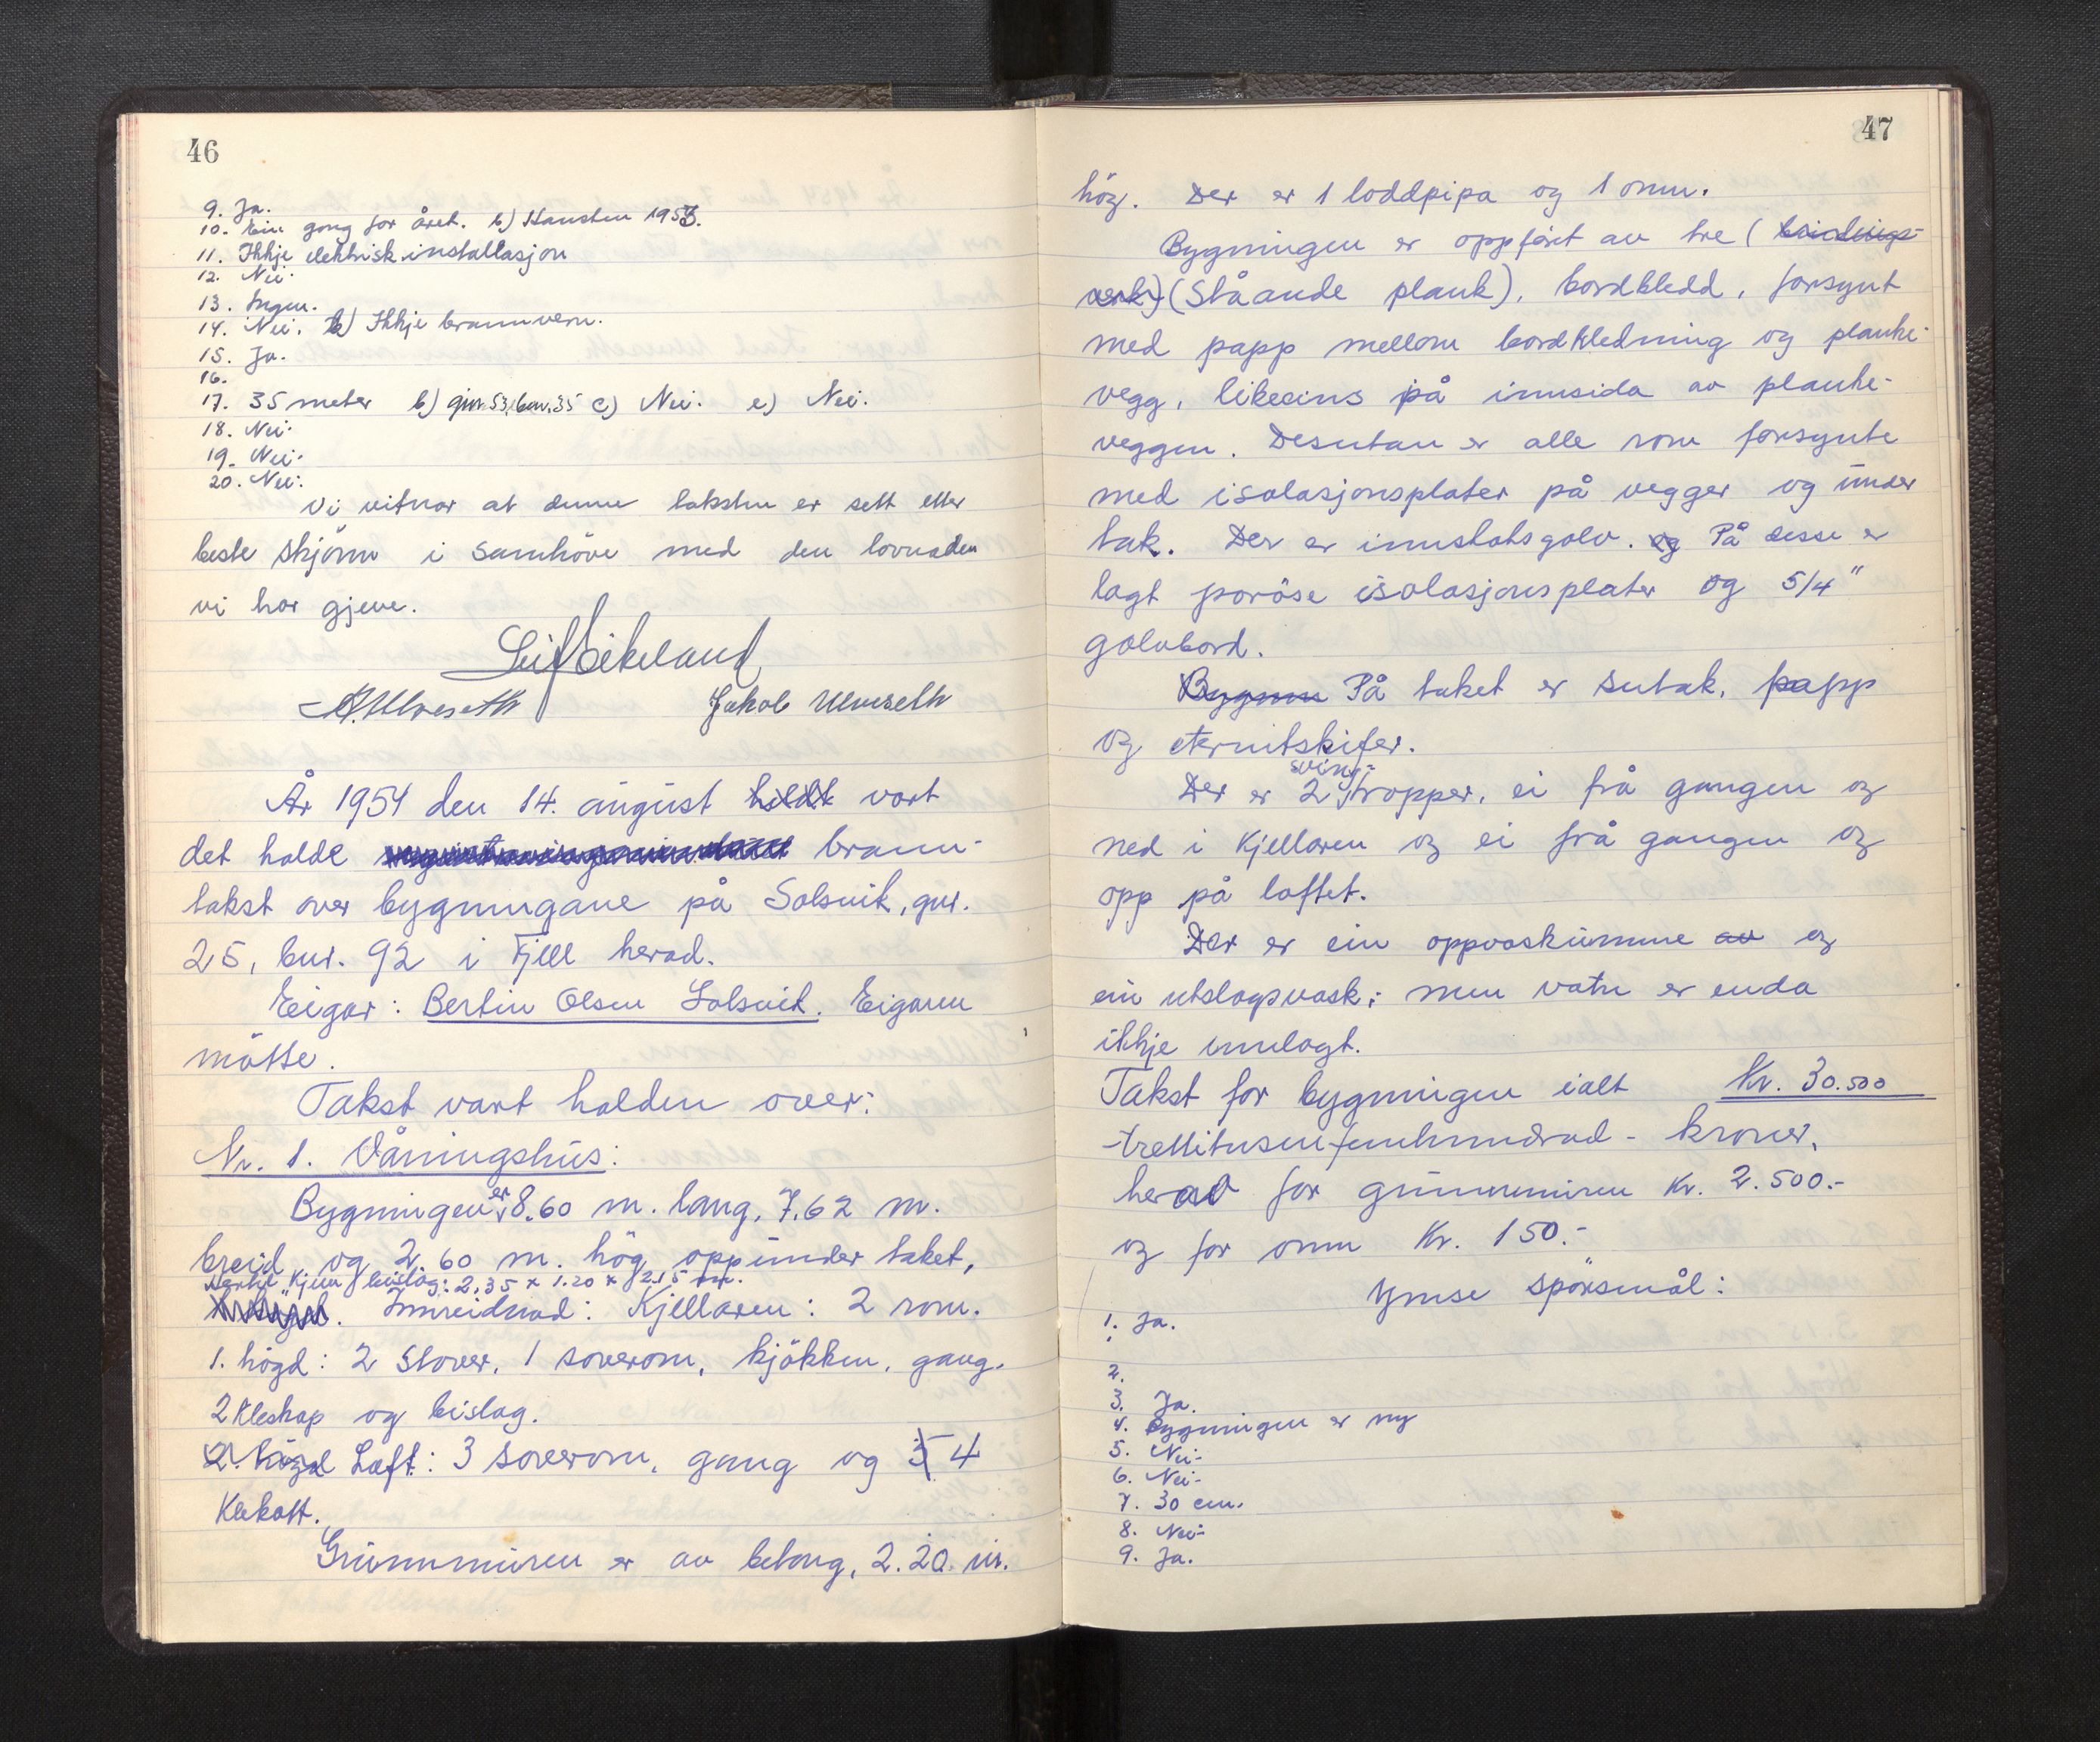 46
9. Ja.
10. Ein gong for året. b) Hausten 1953.
11. Ikkje elektrisk installasjon
12. Nei.
13. Ingen.
14. Nei. b) Ikkje brannvern.
15. Ja.
16.
17. 35 meter b) gnr. 53, bnr. 35 c) Nei. e) Nei.
18. Nei.
19. Nei.
20. Nei.
Vi vitnar at denne taksten er sett etter
beste skjönn i samhöve med den lovnaden
vi har gjeve.
Leif Eikeland
A. Ulveseth Jakob Ulveseth
År 1954 den 14. august holdt vart
det halde brann-
takst over bygningane på Solsvik, gnr.
25, bnr. 92 i Fjell herad.
Eigar: Bertin Olsen Solsvik. Eigaren
mötte.
Takst vart halden over:
Nr. 1. Våningshus:
Bygningen er 8.60 m. lang, 7.62 m.
breid og 2.60 m. hög oppunder taket,
Dertil kjem bislag: 2,35 x 1.20 x 2.15 m.
Innreidnad: Kjellaren: 2 rom.
1. högd: 2 stover, 1 soverom, kjökken, gang.
2 kleskap og bislag.
2. högd Loft: 3 soverom, gang og 3 4
Klekott.
Grunnmuren er av betong, 2.20 m.
47
hög. Der er 1 loddpipa og 1 omn.
Bygningen er oppfört av tre (bindings-
verk) (Ståande plank), bordkledd, forsynt
med papp mellom bordkledning og planke-
vegg, likeeins på innsida av planke-
veggen. Desutan er alle rom forsynte
med isolasjonsplater på vegger og under
tak. Der er innskotsgolv. og På desse er
lagt poröse isolasjonsplater og 5/4"
golvbord.
Bygnin På taket er sutak, papp
og eternitskifer.
sving-
Der er 2 tropper, ei frå gangen og
ned i kjellaren og ei frå gangen og
opp på loftet.
Der er ein oppvaskumme av og
ein utslagsvask; men vatn er enda
ikkje innlagt.
Takst for bygningen ialt Kr. 30.500
trettitusenfemhundrad - kroner,
herav for grunnmuren Kr. 2.500.-
og for omn Kr. 150.-
Ymse spörsmål:
1. Ja.
2.
3. Ja.
4. Bygningen er ny
5. Nei.
6. Nei.
7. 30 cm.
8. Nei.
9. Ja.